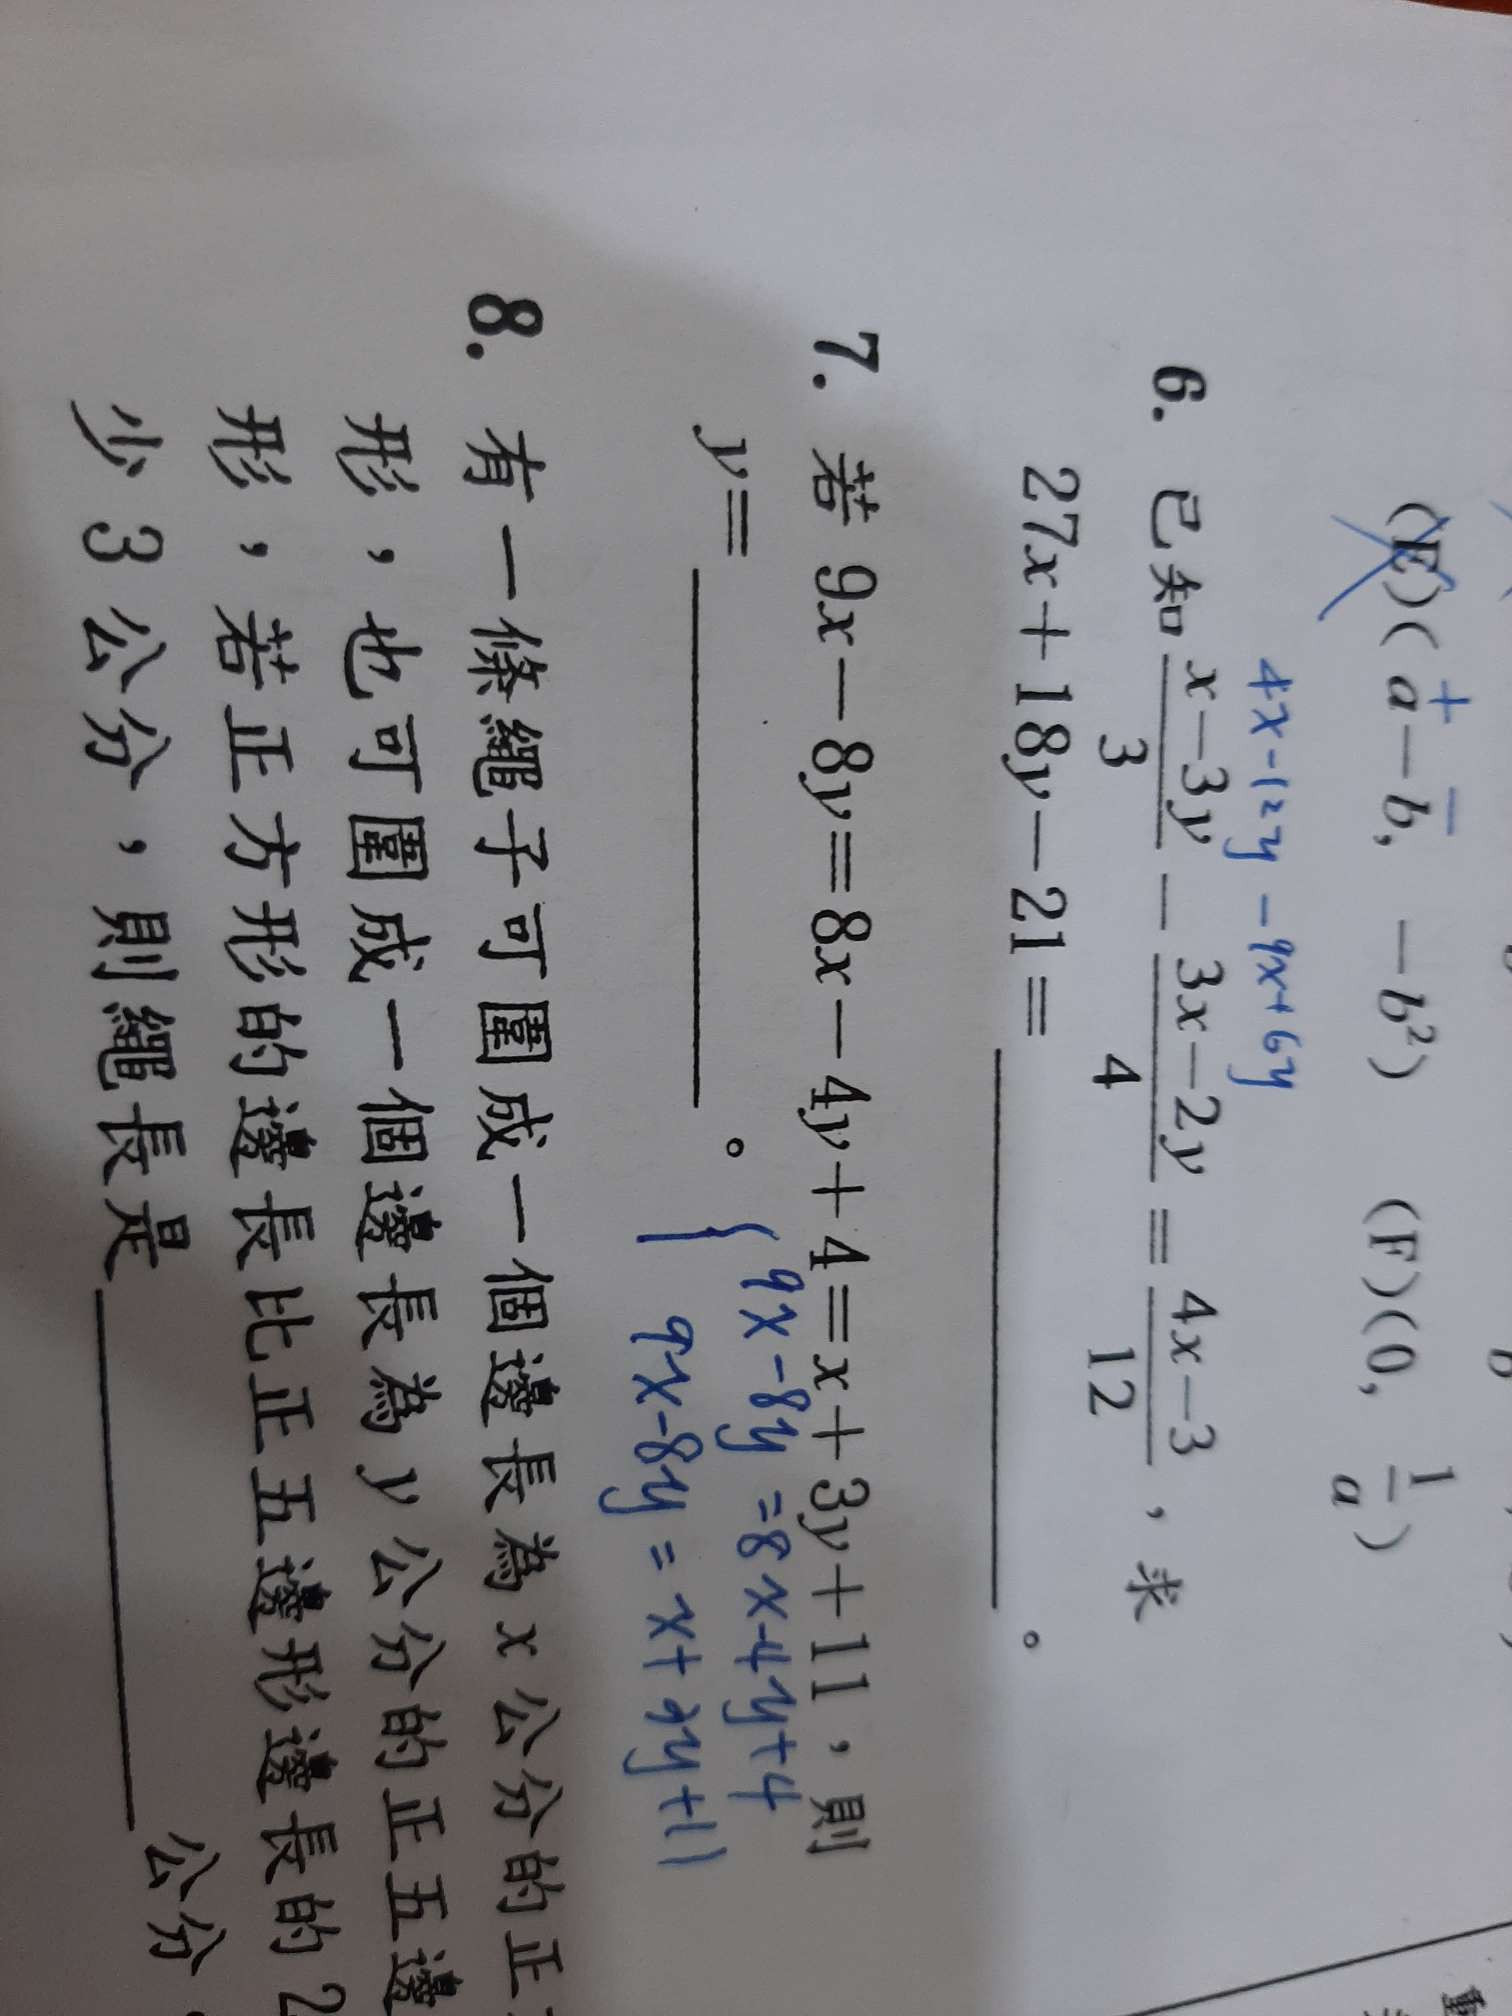 (E)(a－b, －b²)　(F)(0, 1/a)
+ －
4x-12y -9x+6y
6. 已知 (x－3y)/3 － (3x－2y)/4 = (4x－3)/12，求
27x＋18y－21＝＿＿＿＿。
7. 若 9x－8y＝8x－4y＋4＝x＋3y＋11，則
y＝＿＿＿＿。
{ 9x-8y=8x-4y+4
9x-8y=x+3y+11
8. 有一條繩子可圍成一個邊長為 x 公分的正
形，也可圍成一個邊長為 y 公分的正五邊
形，若正方形的邊長比正五邊形邊長的 2
少 3 公分，則繩長是＿＿＿＿公分